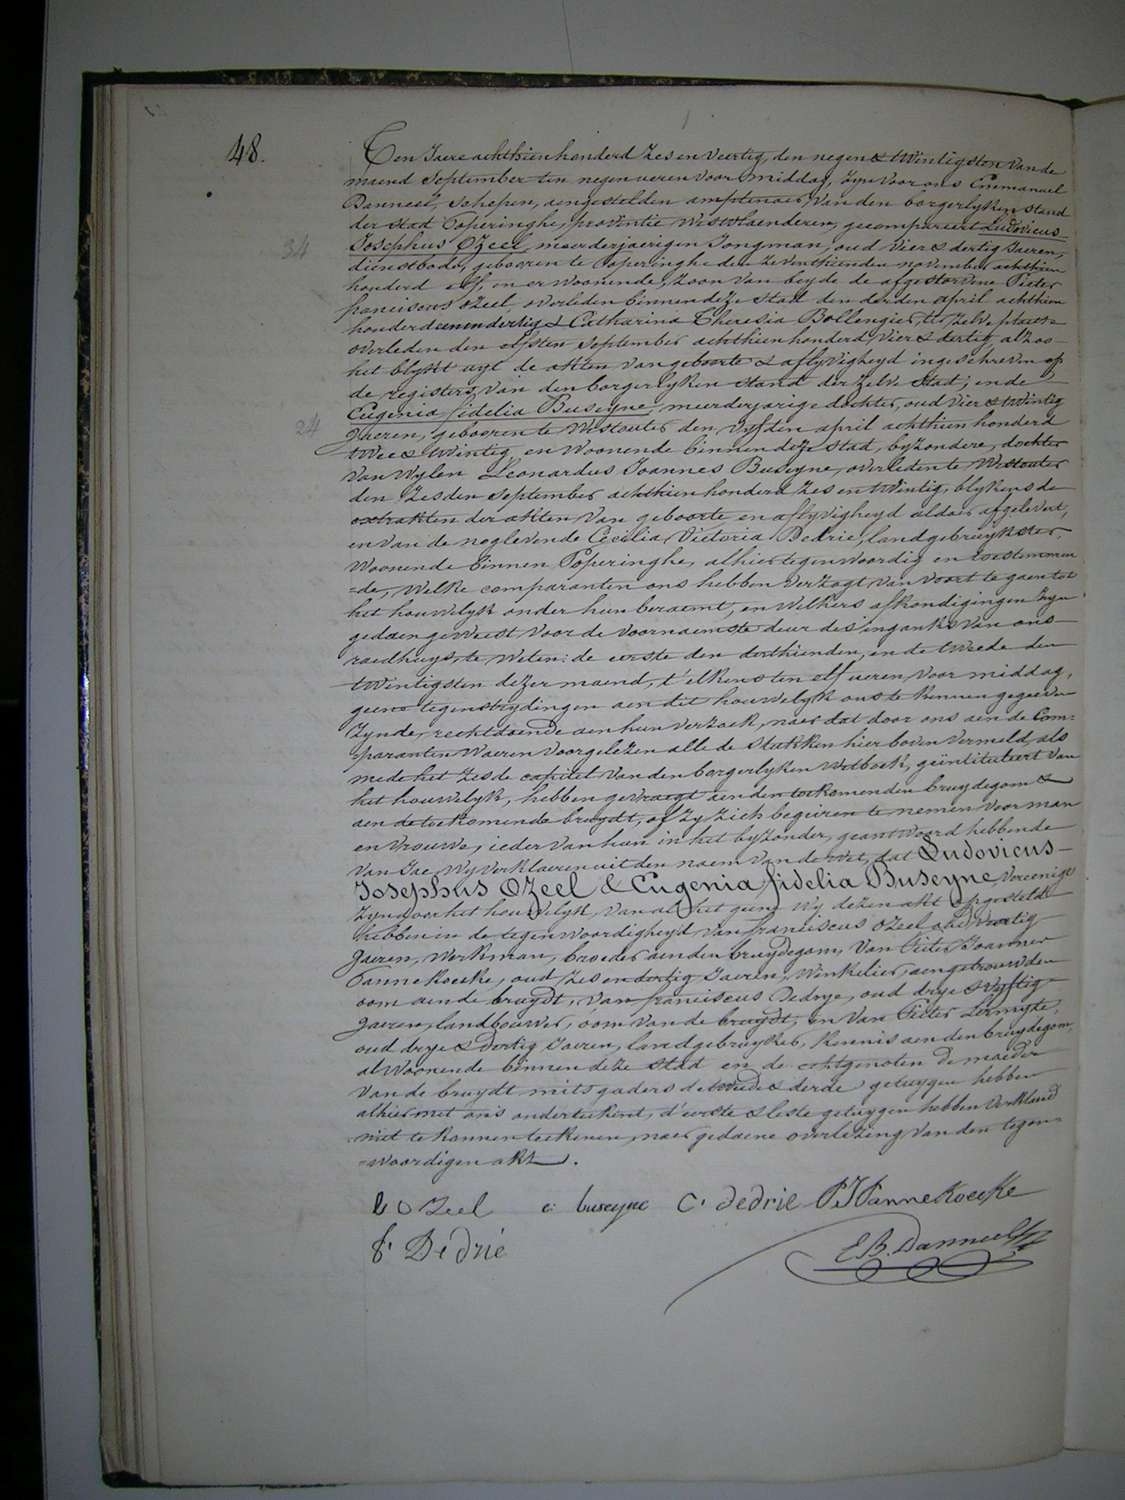 48.
Ten Jaere achthien honderd Zes en Veertig, den negen & twintigsten van de
maend September ten negen ueren voor middag, Zyn voor ons Emmanuel
Danneel, Schepen, aengestelden amptenaer van den borgerlyken stand
der stad Poperinghe, provintie Westvlaenderen, gecompareert Ludovicus
34
Josephus Ozeel, meerderjaerigen Jongman, oud Vier & dertig Jaeren,
dienstbode, geboren te Poperinghe den Zeventhienden november achthien
honderd elf, en er woonende, Zoon van beyde de afgestorvene Pieter
franciscus Ozeel, overleden binnen deze stad den derden april achthien
honderd eenendertig & Catharina Theresia Bollengier, ter zelve plaets
overleden den elfsten September achthien honderd Vier & dertig, alzoo
het blykt uyt de akten van geboorte & aflyvigheyd ingeschreven op
de registers van den borgerlyken stand der Zelve Stad; en de
24
Eugenia fidelia Buseyne, meerderjarige dochter, oud Vier & twintig
Jaeren, geboren te Westouter den vyfden april achthien honderd
twee & twintig, en woonende binnen deze stad, byzondere, dochter
van wylen Leonardus Joannes Buseyne, overleden te Westouter
den Zesden September achthien honderd Zes en twintig, blykens de
extrakten der akten van geboorte en aflyvigheyd aldaer afgelevert,
en van de noglevende Cecilia Victoria Dedrie, landgebruykster,
woonende binnen Poperinghe, alhier tegenwoordig en toestemmen
=de, Welke comparanten ons hebben verzogt van voort te gaen tot
het houwelyk onder hun beraemt, en welkers afkondigingen Zyn
gedaen geweest voor de voornaemste deur des ingangks van ons
raedhuys, te weten: de eerste den derthienden, en de tweede den
twintigsten dezer maend, t'elkens ten elf ueren voor middag,
geene tegenstrydingen aen dit houwelyk ons te kennen gegeven
Zynde, rechtdoende aen hun verzoek, naer dat door ons aen de Com=
paranten waeren voorgelezen alle de stukken hier boven vermeld, als
mede het Zesde capitel van den borgerlyken wetboek, geïntituleert van
het houwelyk, hebben gevraegt aen den toekomenden bruydegom &
aen de toekomende bruydt, of Zy Zich begeiren te nemen voor man
en vrouwe, ieder van hun in het byzonder, geantwoord hebbende
van Jae, Wy verklaeren uit den naem van de wet, dat Ludovicus
Josephus Ozeel & Eugenia fidelia Buseyne, vereenigt
Zyn door het houwelyk, van al het gene wy dezen akt opgesteld
hebben in de tegenwoordigheyd van franciscus Ozeel, oud veertig
Jaeren, werkman, broeder aen den bruydegom, van Pieter Joannes
Pannekoecke, oud Zes en dertig Jaeren, winkelier, aengetrouwden
oom aen de bruydt, van franciscus Dedrye, oud drye & vyftig
Jaeren, landbouwer, oom van de bruydt, en van Pieter Lermyte,
oud drye & dertig Jaeren, landgebruyker, kennis aen den bruydegom,
al woonende binnen deze stad en de echtgenoten de moeder
van de bruydt mitsgaders de tweede & derde getuygen hebben
alhier met ons onderteekent, d'eerste & leste getuygen hebben verklaerd
niet te konnen teekenen, naer gedaene overlezing van den tegen=
=woordigen akt.
L Ozeel e: buseyne C: dedrie P J Pannekoecke
f: Dedrié E.B. Danneel